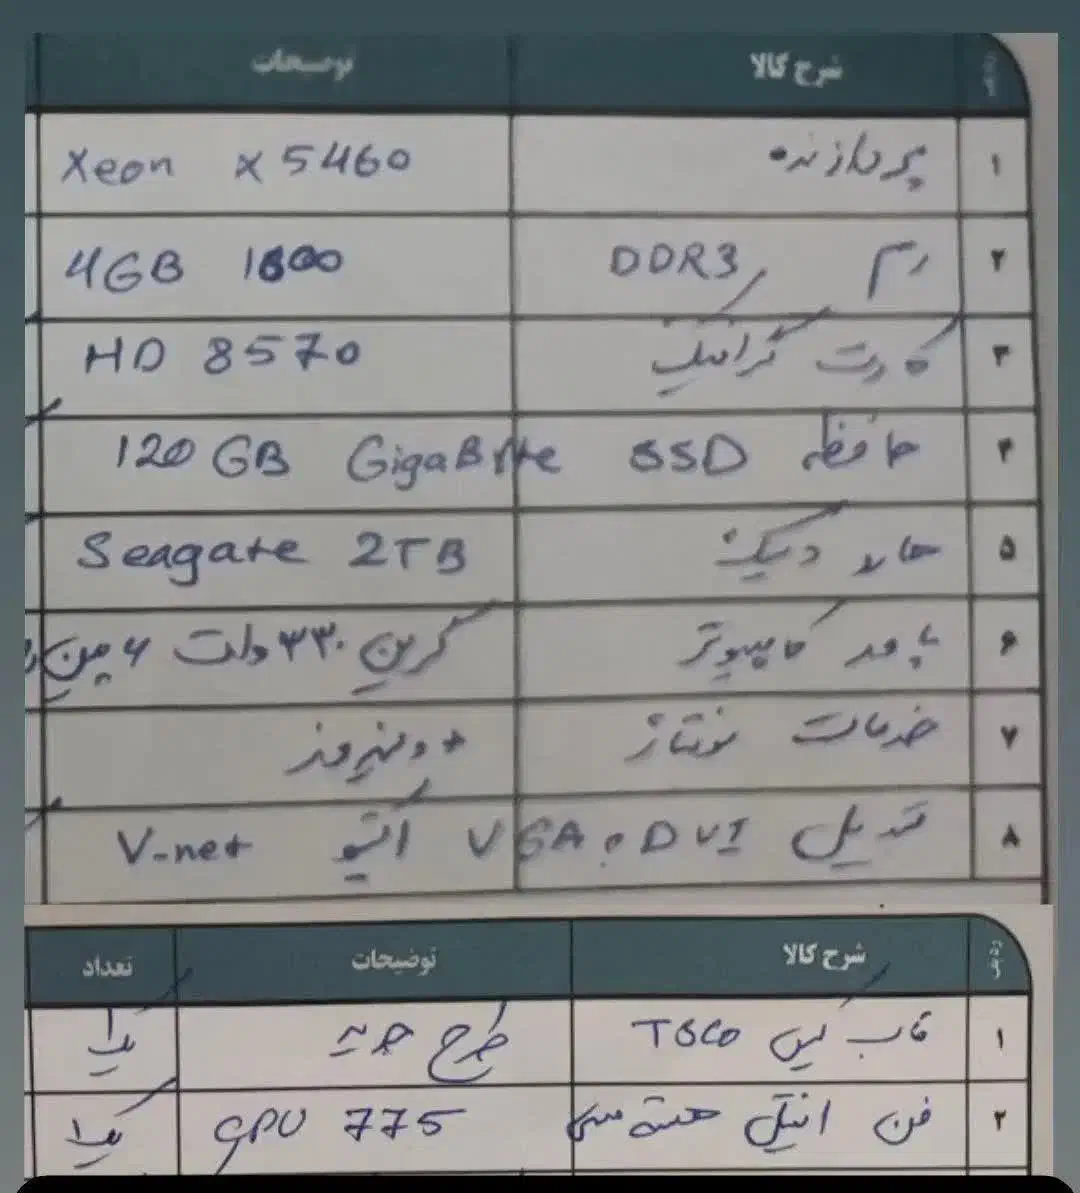 ردیف شرح کالا توضیحات
۱ پردازنده Xeon X5460
۲ رم DDR3 4GB 1600
۳ کارت گرافیک HD 8570
۴ حافظه SSD GigaByte 120 GB
۵ هارد دیسک Seagate 2TB
۶ پاور کامپیوتر گرین ۳۳۰ وات ۶ پین
۷ خدمات مونتاژ + ویندوز
۸ تبدیل DVI به VGA اکتیو V-net
ردیف شرح کالا توضیحات تعداد
۱ قاب کیس TSCO طرح جدید ۱
۲ فن اینتل هسته مسی CPU 775 ۱